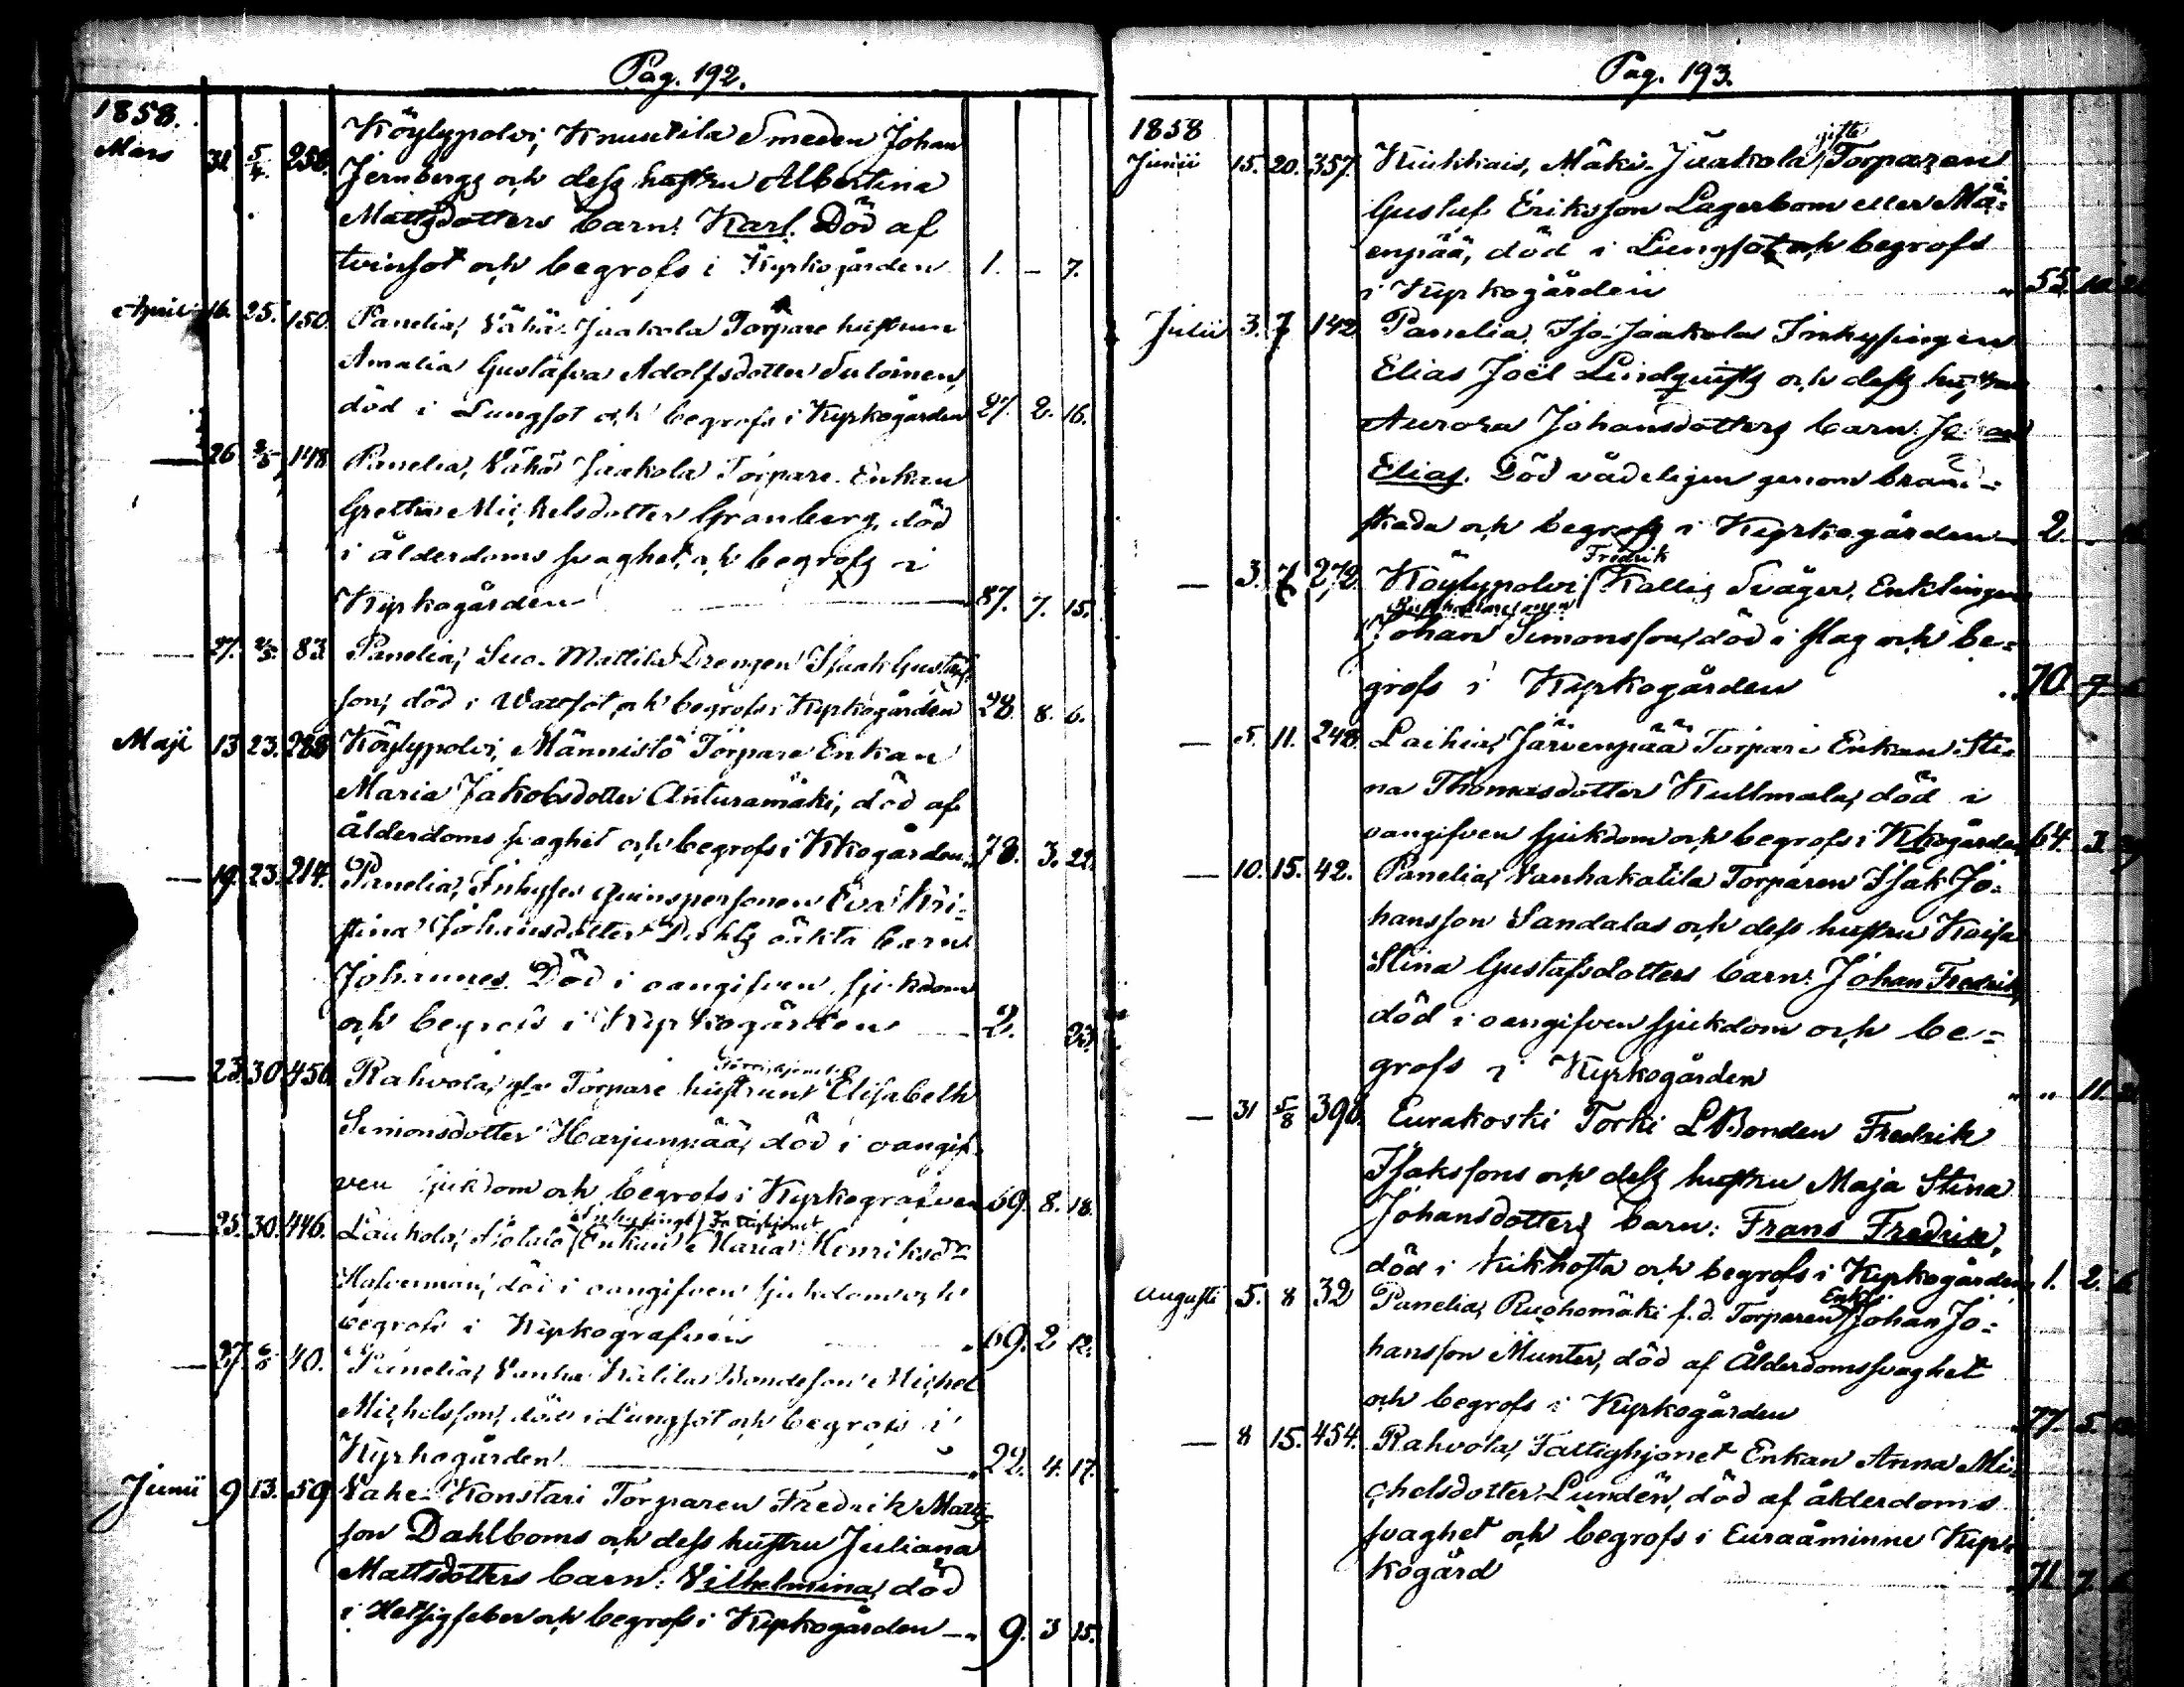 Pag. 192.
1858.
Mars 31 5/4. 256. Köylypolvi, Knuutila Smeden Johan
Jernbergs och dess hustru Albertina
Mattsdotters barn: Karl. Död af
tvinsot och begrofs i Kyrkogården 1. – 7.
April 16. 25. 150. Panelia, Vähä Jaakola Torpare hustrun
Amalia Gustafva Adolfsdotter Suloinen,
död i Lungsot och begrofs i Kyrkogården 27. 2. 16.
— 26 2/5 148 Panelia, Vähä Jaakola Torpare Enkan
Gretha Michelsdotter Granberg, död
i ålderdoms svaghet och begrofs i
Kyrkogården 87. 7. 15.
— 27. 2/5. 83 Panelia, Suo-Mattila Drengen Isaak Gustafs-
son, död i Wattsot och begrofs i Kyrkogården 28. 8. 6.
Maji 13 23. 288 Köylypolvi, Männistö Torpare Enkan
Maria Jakobsdotter Anturamäki, död af
ålderdoms svaghet och begrofs i Kkogården. 78. 3. 22.
— 19. 23. 214. Panelia, Inhyses Qvinspersonen Eva Kri-
stina Johansdotter Dahls oäkta barn
Johannes. Död i oangifven sjukdom
och begrofs i Kyrkogården — 2. 23.
— 23. 30 456 Rahvola, Torpare hustrun Elisabeth
Simonsdotter Harjunpää, död i oangif-
ven sjukdom och begrofs i Kyrkogrofven 69. 8. 18.
Inhysings Fattighjonet
— 25. 30. 446. Laukola, Enkan Maria Henriksdr
död i oangifven sjukdom och
begrofs i Kyrkografven 69. 2 12.
— 27. 6/6 40. Panelia, Vanha Katila Bondeson Michel
Michelsson, död i Lungsot och begrofs i
Kyrkogården 22. 4. 17.
Junii 9 13. 59 Vahe-Konstari Torparen Fredrik Matts-
son Dahlboms och dess hustru Juliana
Mattsdotters barn: Vilhelmina, död
i Hetsigfeber och begrofs i Kyrkogården — 9. 3 15.
Pag. 193.
1858
gifte
Junii 15. 20. 357. Kiukkais, Mäki-Jaakola Torparen
Gustaf Eriksson Lagerbom eller Mä-
enpää, död i Lungsot och begrofs
i Kyrkogården 55. 10.
Julii 3. 7 142 Panelia, Iso-Jaakola Inhysingen
Elias Joël Lindqvists och dess hustru
Aurora Johansdotters barn: Johan
Elias. Död vådeligen genom brand-
skada och begrofs i Kyrkogården 2.
Fredrik
— 3. 7 272. Köylypolvi Kallis Svåger, Enklingen
Johan Simonsson, död i slag och be-
grofs i Kyrkogården 70 7
— 5. 11. 248. Laihia, Järvenpää Torpare Enkan Sti-
na Thomasdotter Kullmala, död i
oangifven sjukdom och begrofs i Kkogården 64. 3
— 10. 15. 42. Panelia, Vanhakatila Torparen Isak Jo-
hansson Sandalas och dess hustru Kaisa
Stina Gustafsdotters barn: Johan Fredrik,
död i oangifven sjukdom och be-
grofs i Kyrkogården „ „ 11.
— 31 5/8 398 Eurakoski Torki LBonden Fredrik
Isakssons och dess hustru Maja Stina
Johansdotters barn: Frans Fredrik,
död i kikhosta och begrofs i Kyrkogården 1. 2. 6
Enkl:
Augusti 5. 8 32 Panelia, Ruohomäki f.d. Torparen Johan Jo-
hansson Munter, död af Ålderdomssvaghet
och begrofs i Kyrkogården 77. 5.
— 8 15. 454. Rahvola, Fattighjonet Enkan Anna Mi-
chelsdotter Lundén, död af ålderdoms
svaghet och begrofs i Euraåminne Kyr-
kogård 71 7